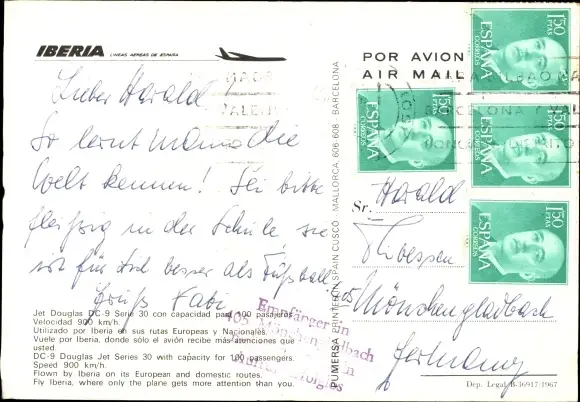 IBERIA LINEAS AEREAS DE ESPAÑA
Lieber Harald
So lernt Mama die
Welt kennen! Sei bitte
fleißig in der Schule, sie
ist für Dich besser als Fußball.
Gruß Vati
Jet Douglas DC-9 Serie 30 con capacidad para 100 pasajeros
Velocidad 900 km/h.
Utilizado por Iberia en sus rutas Europeas y Nacionales.
Vuele por Iberia, donde sólo el avión recibe más atenciones que
usted.
DC-9 Douglas Jet Series 30 with capacity for 100 passengers.
Speed 900 km/h.
Flown by Iberia on its European and domestic routes.
Fly Iberia, where only the plane gets more attention than you.
Empfänger in
405 Mönchengladbach
PUMERSA PRINTED IN SPAIN CUSCO MALLORCA 606-608 BARCELONA
POR AVION
AIR MAIL
1'50 PTAS
ESPAÑA
CORREOS
1'50 PTAS
ESPAÑA
CORREOS
1'50 PTAS
ESPAÑA
CORREOS
1'50 PTAS
ESPAÑA
CORREOS
BARCELONA Y
Sr. Harald
405 Mönchengladbach
Germany
Dep. Legal B-36917/1967